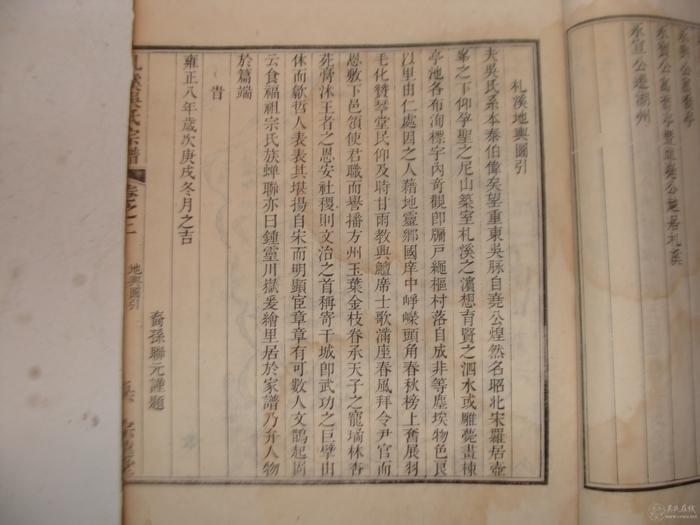 永宣公遷湖州
札溪地輿圖引
夫吳氏系本泰伯偉矣望重東吳脉自堯公煌然名昭北宋羅居壺
峯之下仰孕聖之尼山築室札溪之濵想育賢之泗水或雕甍畫棟
亭池各布洵標字內奇觀卽牖戶繩樞村落自成非等塵埃物色艮
以里由仁處因之人藉地靈鄉國庠中崢嶸頭角春秋榜上奮展羽
毛化贊琴堂民仰及時甘雨教興鱣席士歌滿座春風拜令尹官而
恩敷下邑領使君職而譽播方州玉葉金枝眷承天子之寵瑀林杳
苑膏沐王者之恩安社稷則文治之首稱寄干城卽武功之巨擘由
休而歙哲人表表其堪揚自宋而明顯宦章章有可數人文鵲起圖
云食福祖宗氏族蟬聯亦曰鍾靈川嶽爰繪里居於家譜乃弁人物
於篇端
旹
雍正八年歲次庚戌冬月之吉
裔孫聯元謹題
氏宗譜
卷之二
地輿圖引
吳氏在线